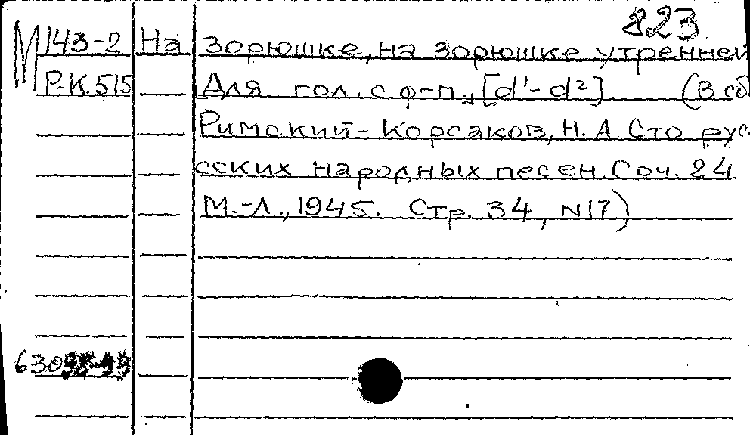 223
М 143-2 На зорюшке, на зорюшке утренней
Р-К 515 Для гол. с ф-п., [d¹-d²] (В сб
Римский-Корсаков, Н. А. Сто рус-
сских народных песен. Соч. 24
М.-Л., 1945. Стр. 34, N17)